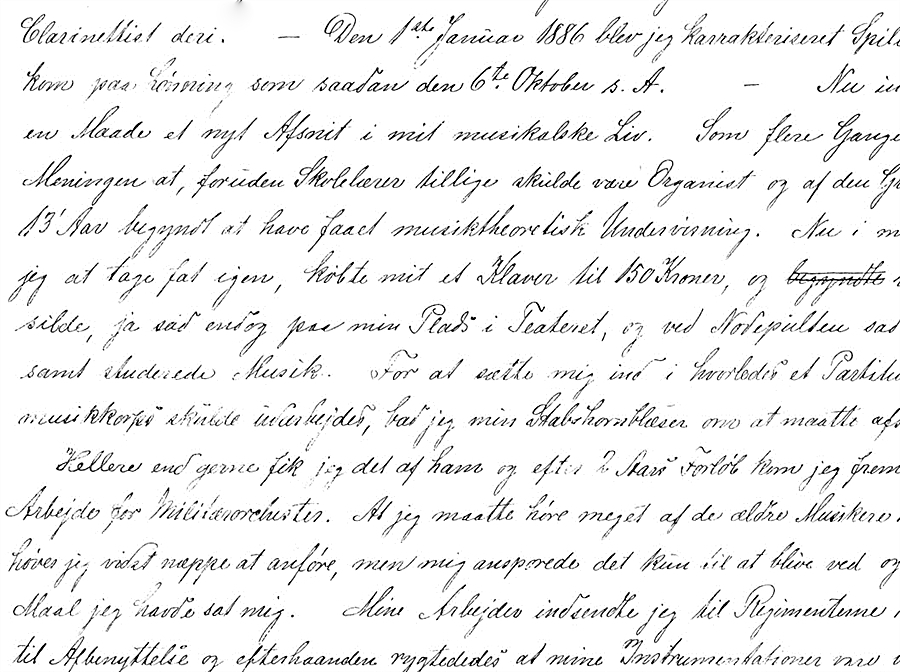 Clarinettist deri. — Den 1ste Januar 1886 blev jeg karrakteriseret Spill
kom paa Lønning som saadan den 6te Oktober s. A. — Nu in
en Maade et nyt Afsnit i mit musikalske Liv. Som flere Gange
Meningen at, foruden Skolelærer tillige skulde være Organist og af den Gr
13' Aar begyndt at have faaet musiktheoretisk Undervisning. Nu i m
jeg at tage fat igen, købte mit et Klaver til 150 Kroner, og begyndte
silde, ja sad endog paa min Plads i Teateret, og ved Nodepulten sad
samt studerede Musik. For at sætte mig ind i hvorledes et Partitu
musikkorps skulde udarbejdes, bad jeg min Stabshornblæser om at maatte afs
Hellere end gerne fik jeg det af ham og efter 2 Aars Forløb kom jeg frem
Arbejde for Militærorchester. At jeg maatte høre meget af de ældre Musikere
høver jeg vidst næppe at anføre, men mig ansporede det kun til at blive ved og
Maal jeg havde sat mig. Mine Arbejder indsendte jeg til Regimenterne
til Afbenyttelse og efterhaanden rygtededes at mine Instrumentationer vare v